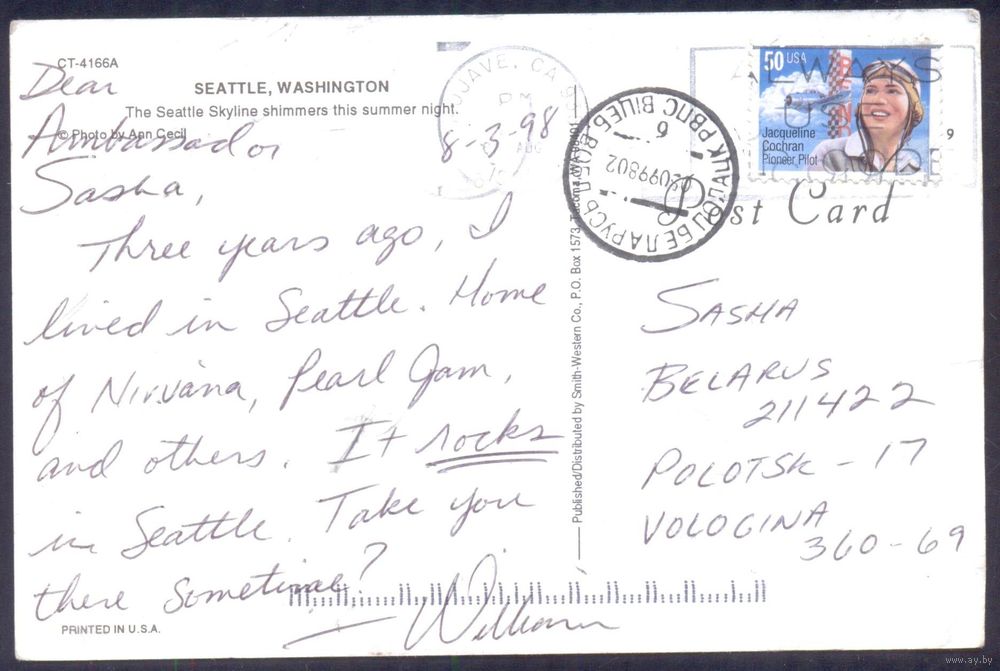 CT-4166A
SEATTLE, WASHINGTON
The Seattle Skyline shimmers this summer night.
© Photo by Ann Cecil
Dear
Ambassador
Sasha,
8-3-98
Three years ago, I
lived in Seattle. Home
of Nirvana, Pearl Jam,
and others. It rocks
in Seattle. Take you
there sometime?
— William
PRINTED IN U.S.A.
Published/Distributed by Smith-Western Co., P.O. Box 1573, Tacoma, WA
MOJAVE, CA
PM
AUG
БЕЛАРУСЬ
ПОЛАЦК РВПС ВІЦЕБ. ВОБЛ.
02099802
6
50 USA
Jacqueline
Cochran
Pioneer Pilot
ALWAYS
USE
CODE
9
Post Card
SASHA
BELARUS
211422
POLOTSK - 17
VOLOGINA
360-69
www.ay.by